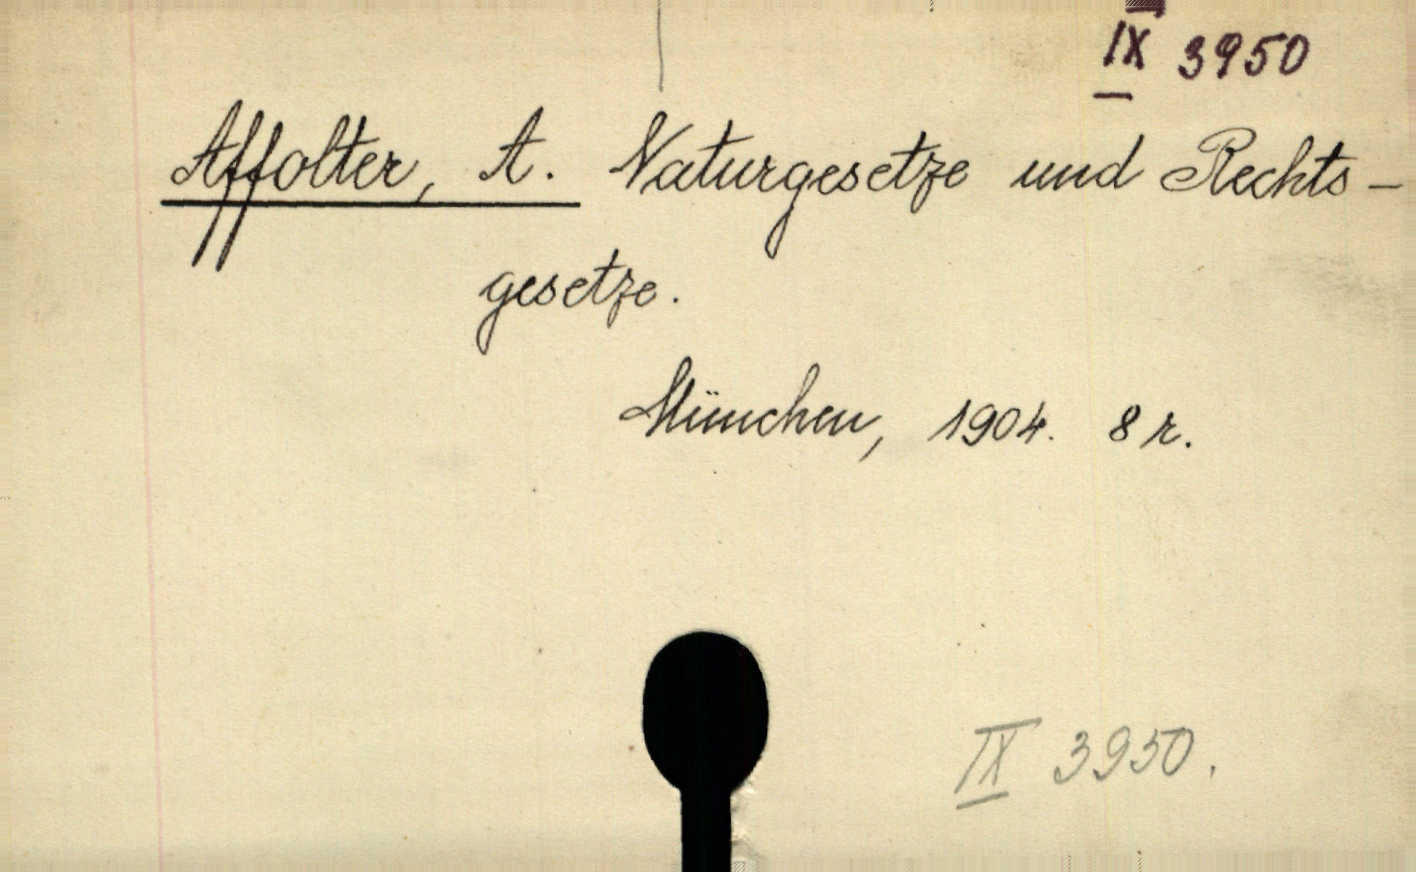 IX 3950
Affolter, A. Naturgesetze und Rechts-
gesetze.
München, 1904. 8 r.
IX 3950.